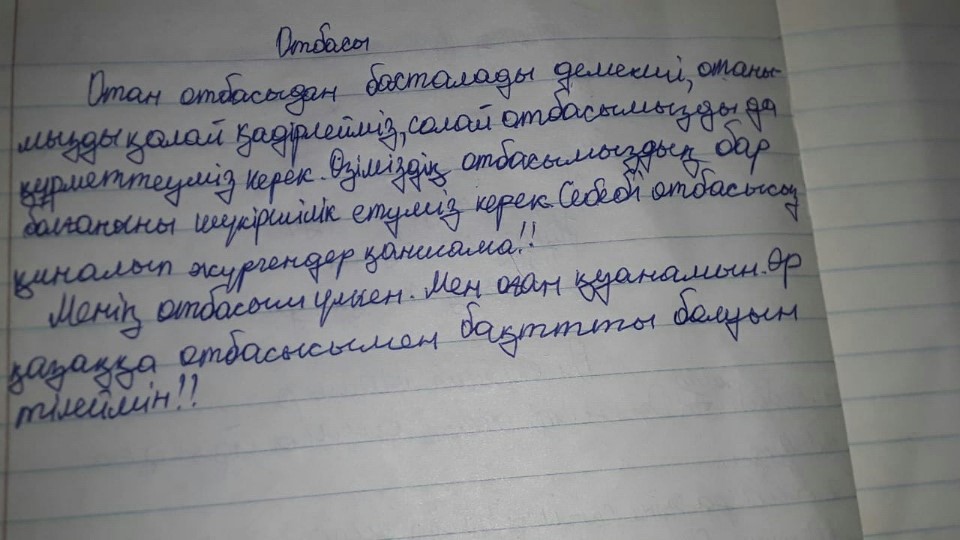 Отбасы
Отан отбасыдан басталады демекші, отаны-
мызды қалай қадірлейміз, солай отбасымызды да
құрметтеуміз керек. Өзіміздің отбасымыздың бар
болғанына шүкіршілік етуміз керек. Себебі отбасысыз
қиналып жүргендер қаншама!!
Менің отбасым үлкен. Мен оған қуанамын. Әр
қазаққа отбасысымен бақытты болуын
тілеймін!!